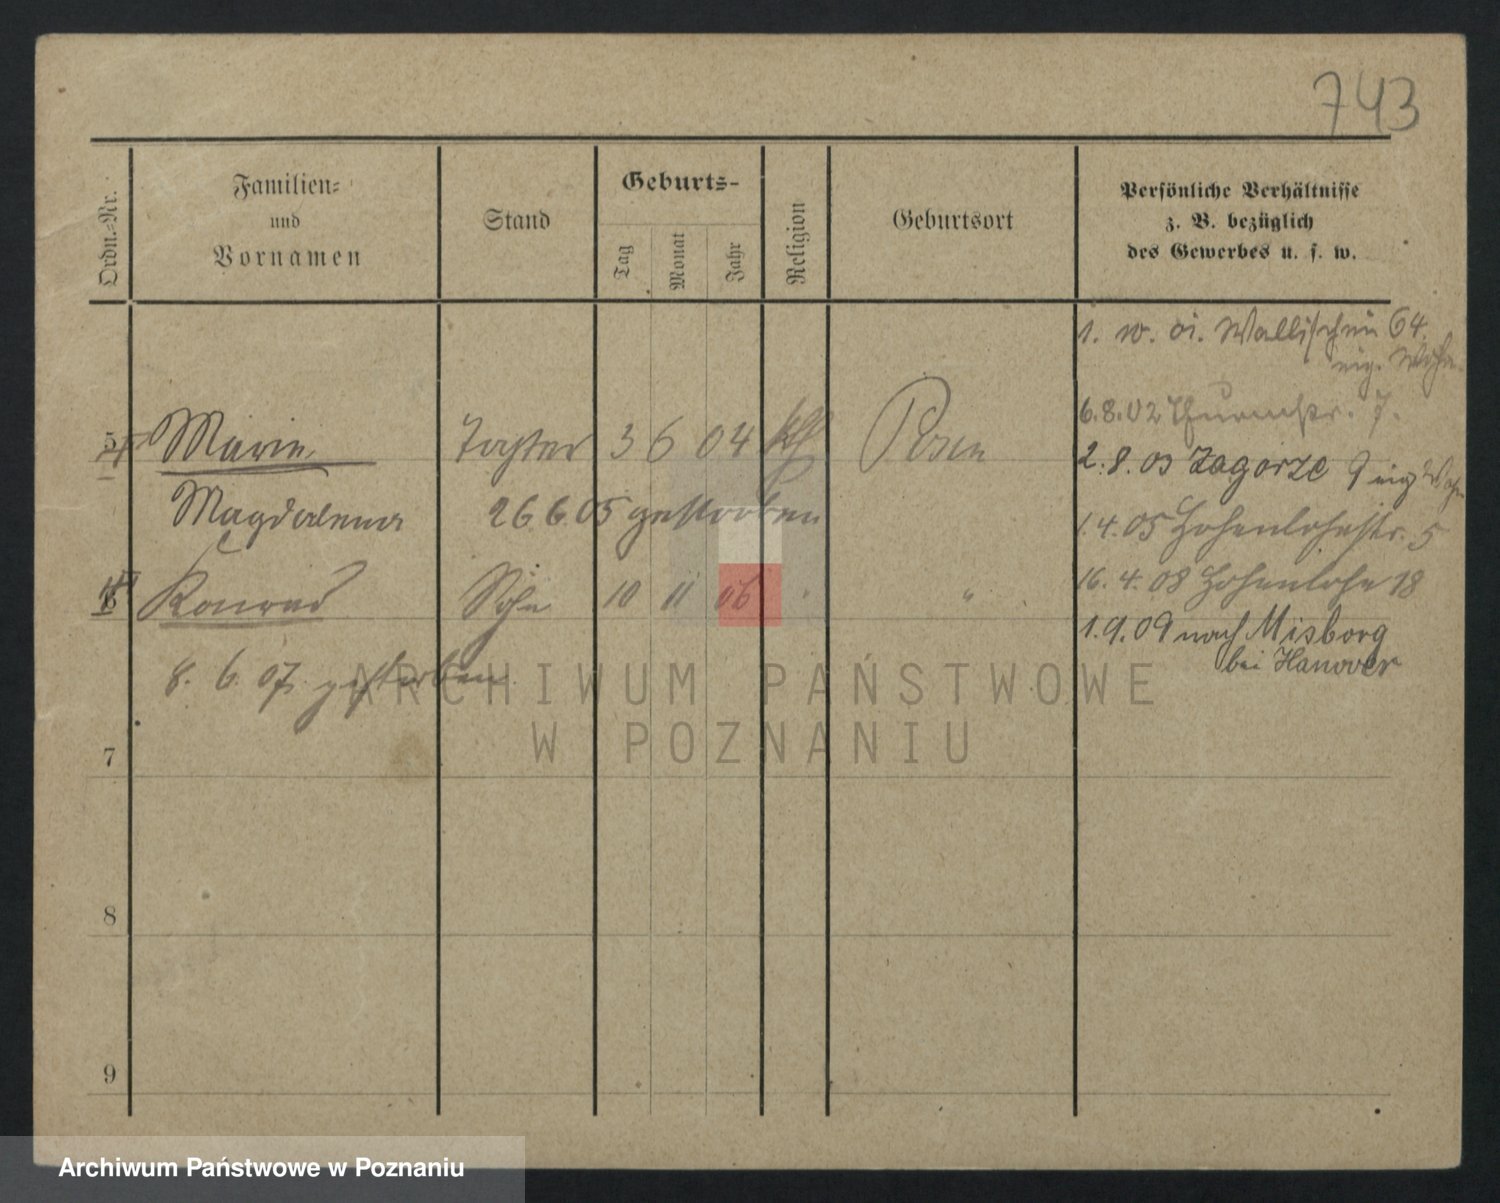 743
Ordn.-Nr.
Familien-
und
Vornamen
Stand
Geburts-
Tag
Monat
Jahr
Religion
Geburtsort
Persönliche Verhältnisse
z. B. bezüglich
des Gewerbes u. s. w.
1. w. oi. Wallischei 64.
eig. Wohn.
6.8.02 Thurmstr. 7.
5 Marie Tochter 3 6 04 kth Posen
2.8.03 Zagorze 9 eig Wohn
Magdalena 26.6.05 gestorben
1.4.05 Hohenlohestr. 5
6 Konrad Sohn 10 11 06 " "
16.4.08 Hohenlohe 18
1.9.09 nach Misborg
bei Hanover
8. 6. 07. gestorben
ARCHIWUM PAŃSTWOWE
W POZNANIU
7
8
9
Archiwum Państwowe w Poznaniu